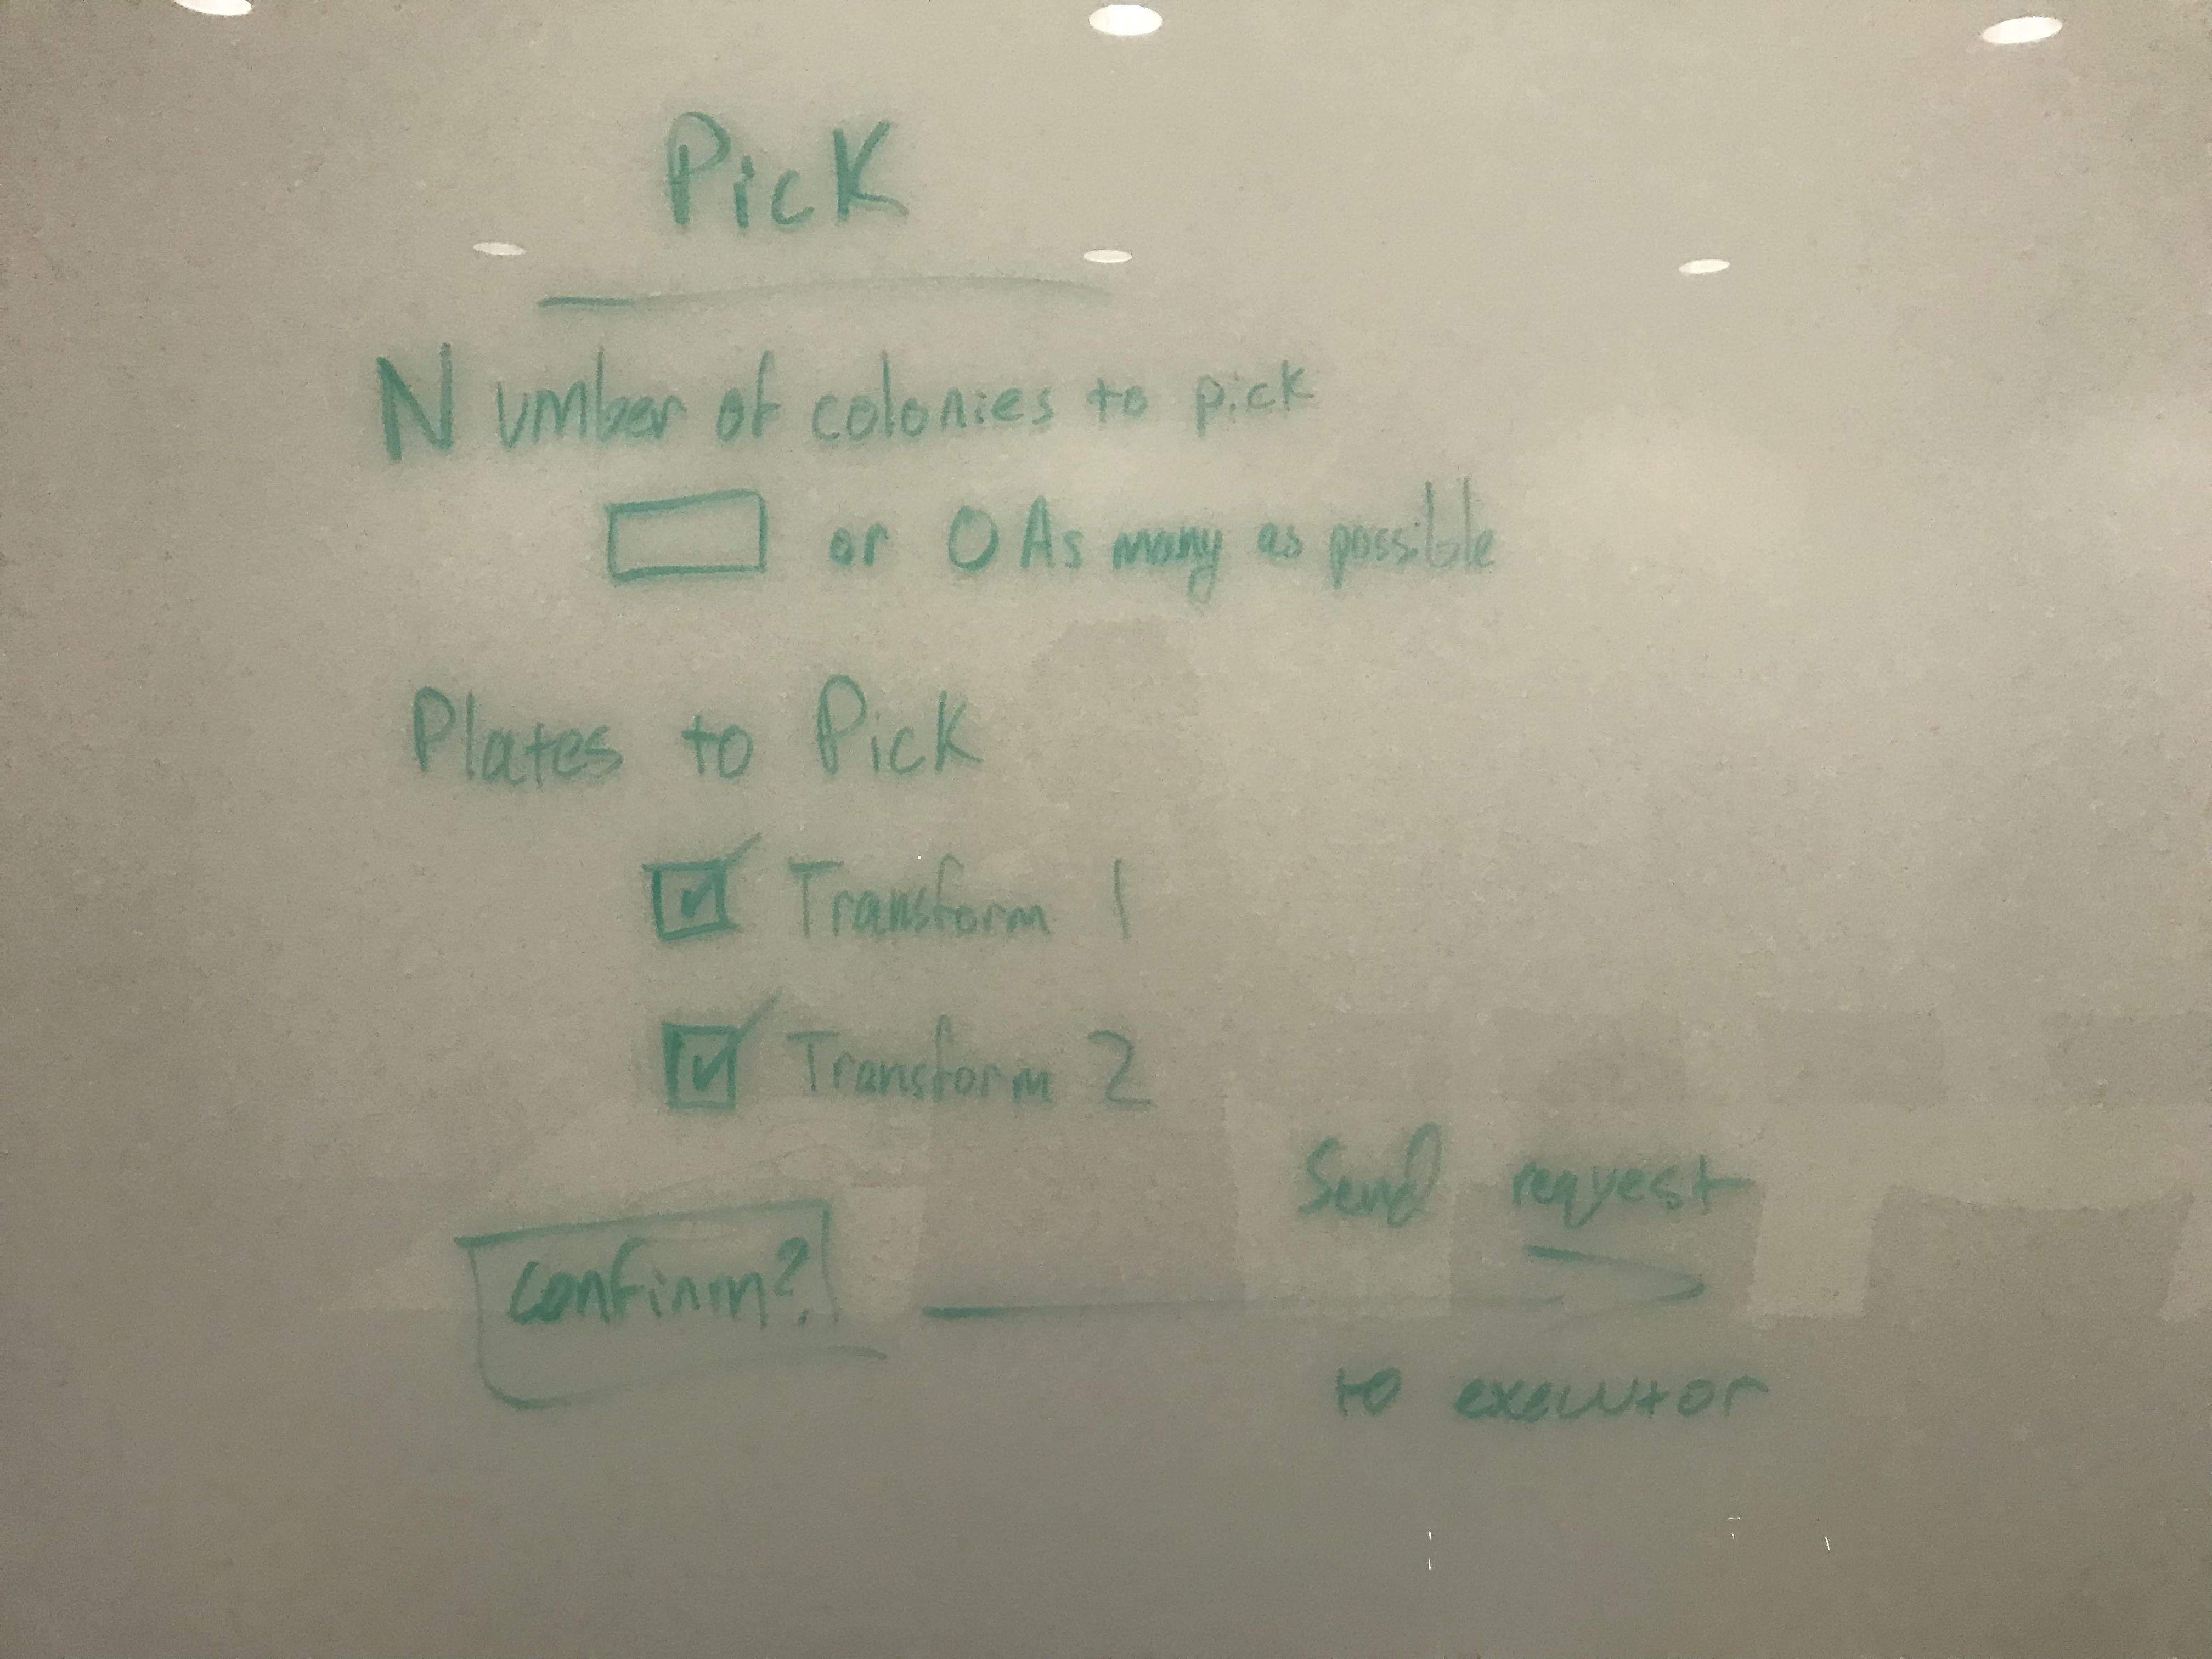 Pick
Number of colonies to pick
or O As many as possible
Plates to Pick
Transform 1
Transform 2
Confirm?
Send request
to executor